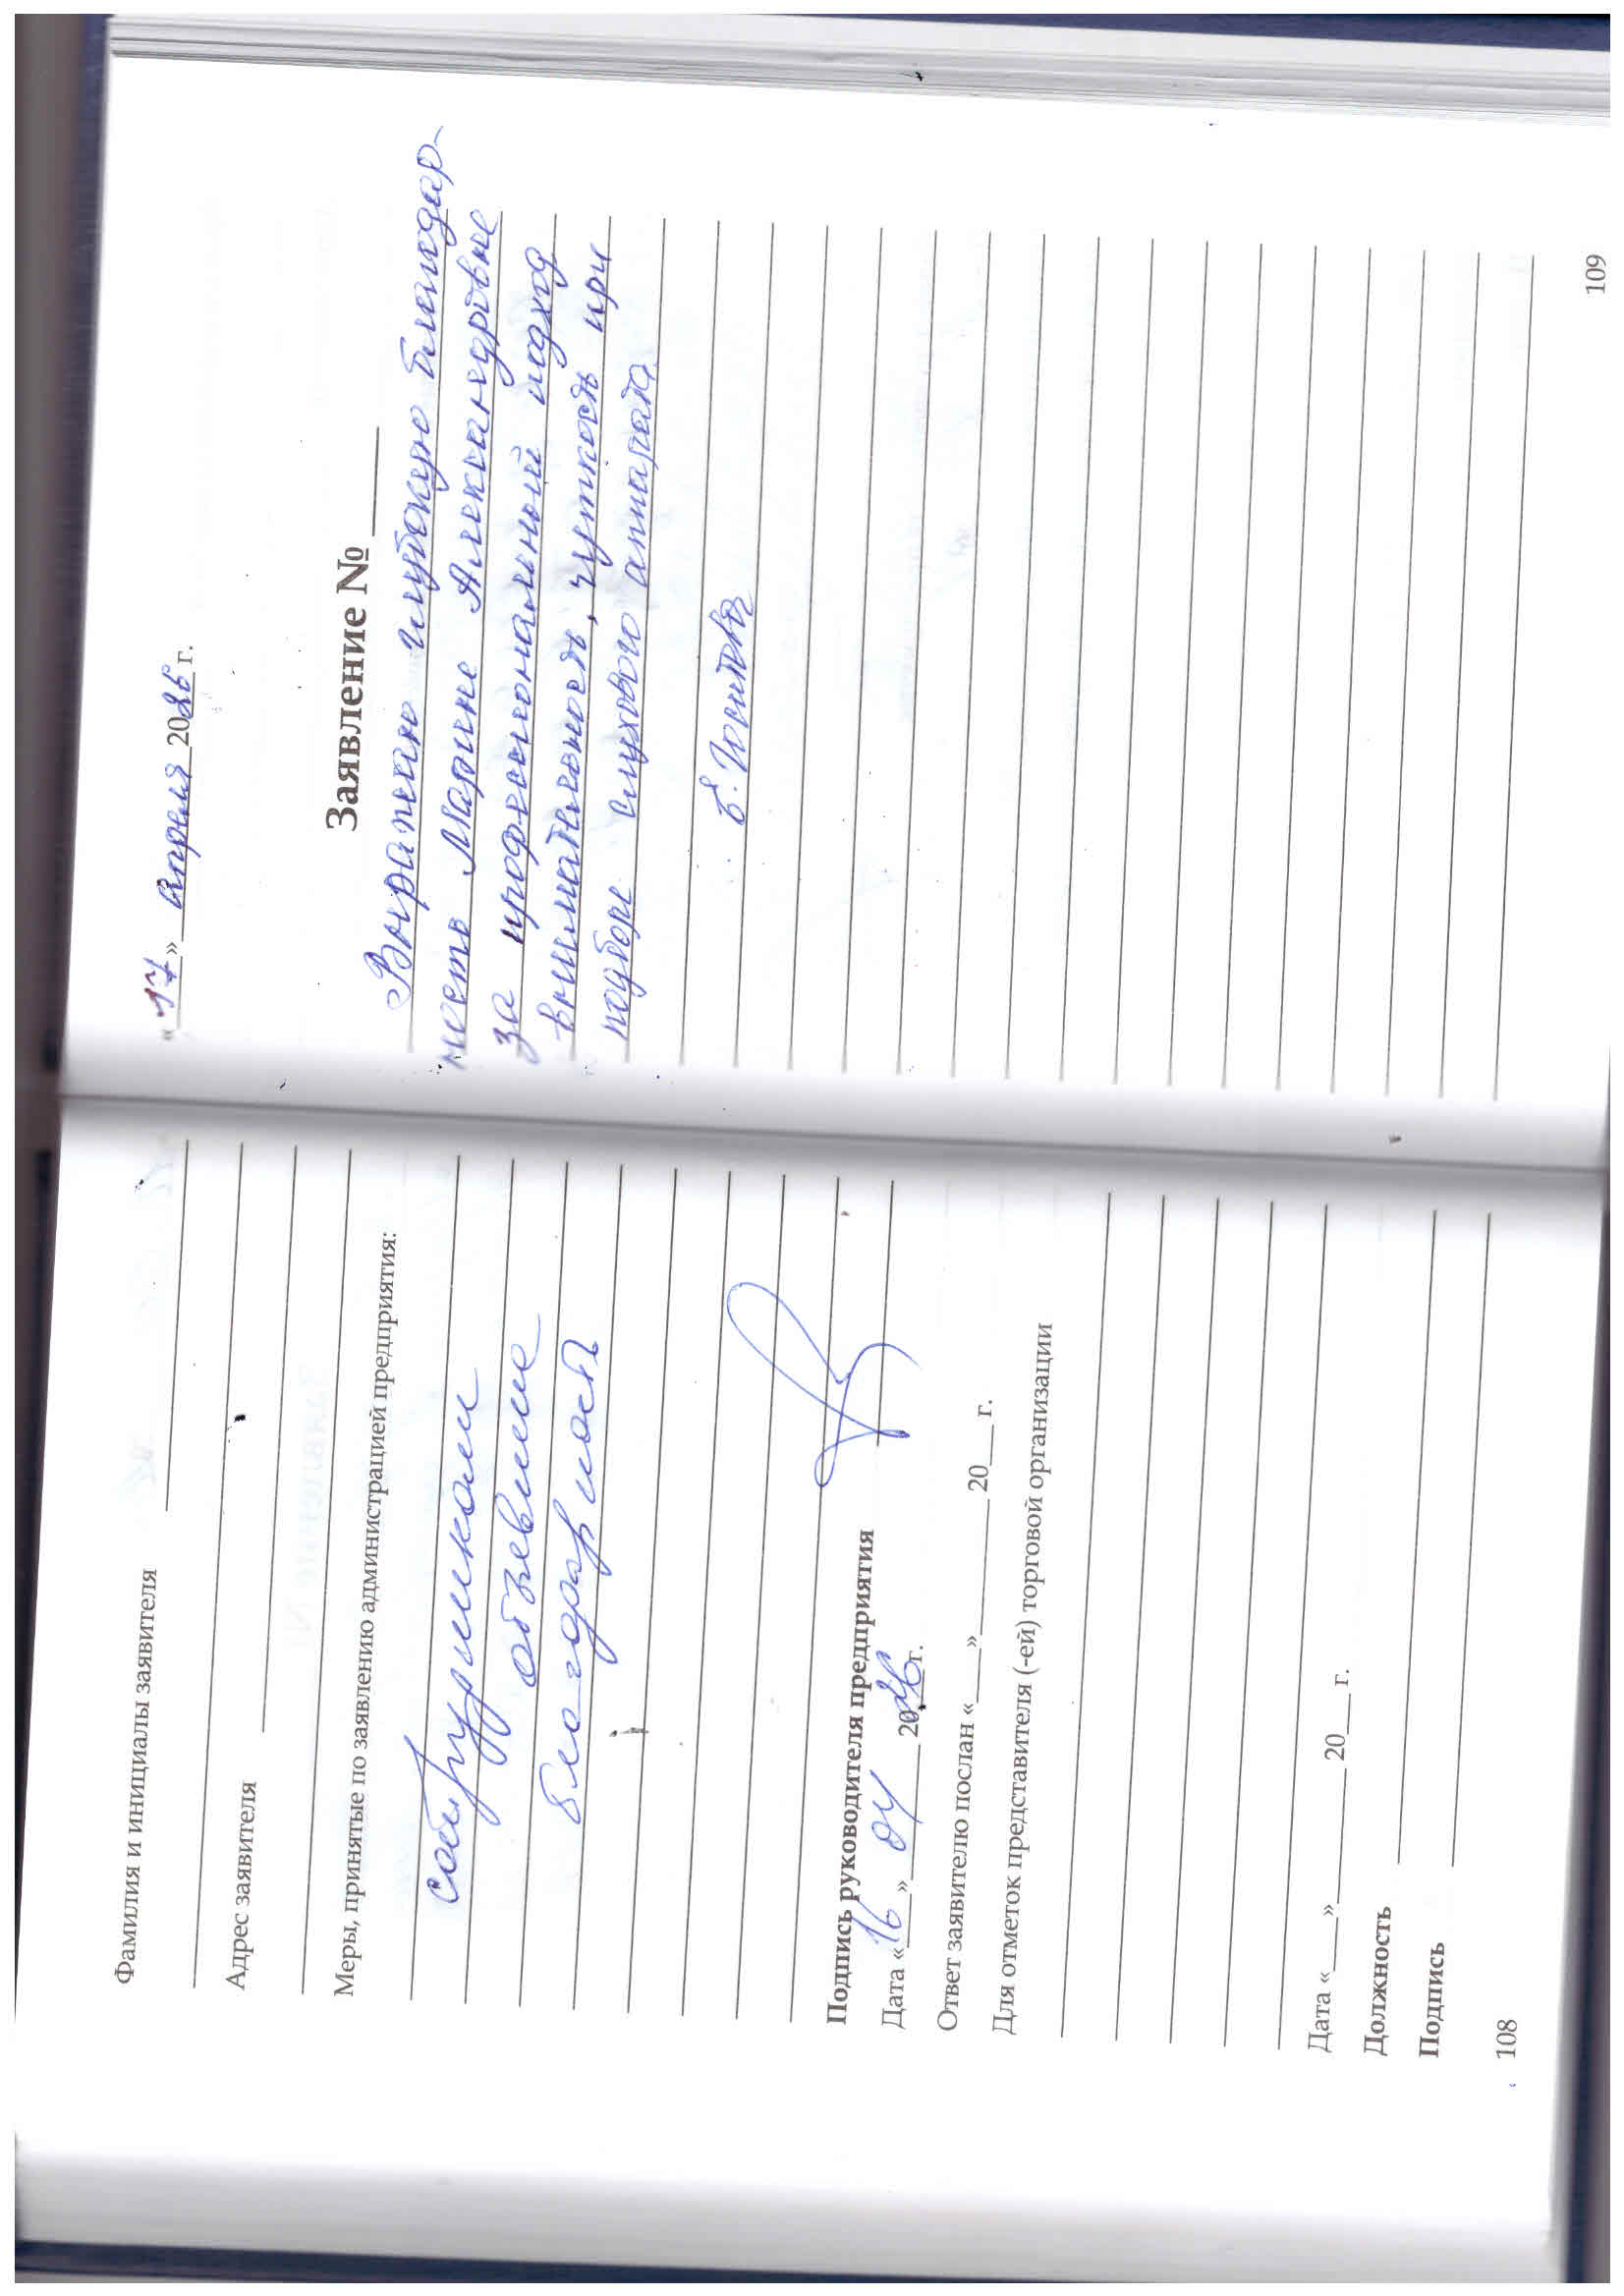 Фамилия и инициалы заявителя
Адрес заявителя
Меры, принятые по заявлению администрацией предприятия:
сотрудникам
объявлена
благодарность
Подпись руководителя предприятия
Дата «16» 04 2026 г.
Ответ заявителю послан «___» ______ 20___ г.
Для отметок представителя (-ей) торговой организации
Дата «___» ______ 20___ г.
Должность
Подпись
108
«17» апреля 2026 г.
Заявление № ____
Выражаю глубокую благодар-
ность Марине Александровне
за профессиональный подход
внимательность, чуткость при
подборе слухового аппарата
109